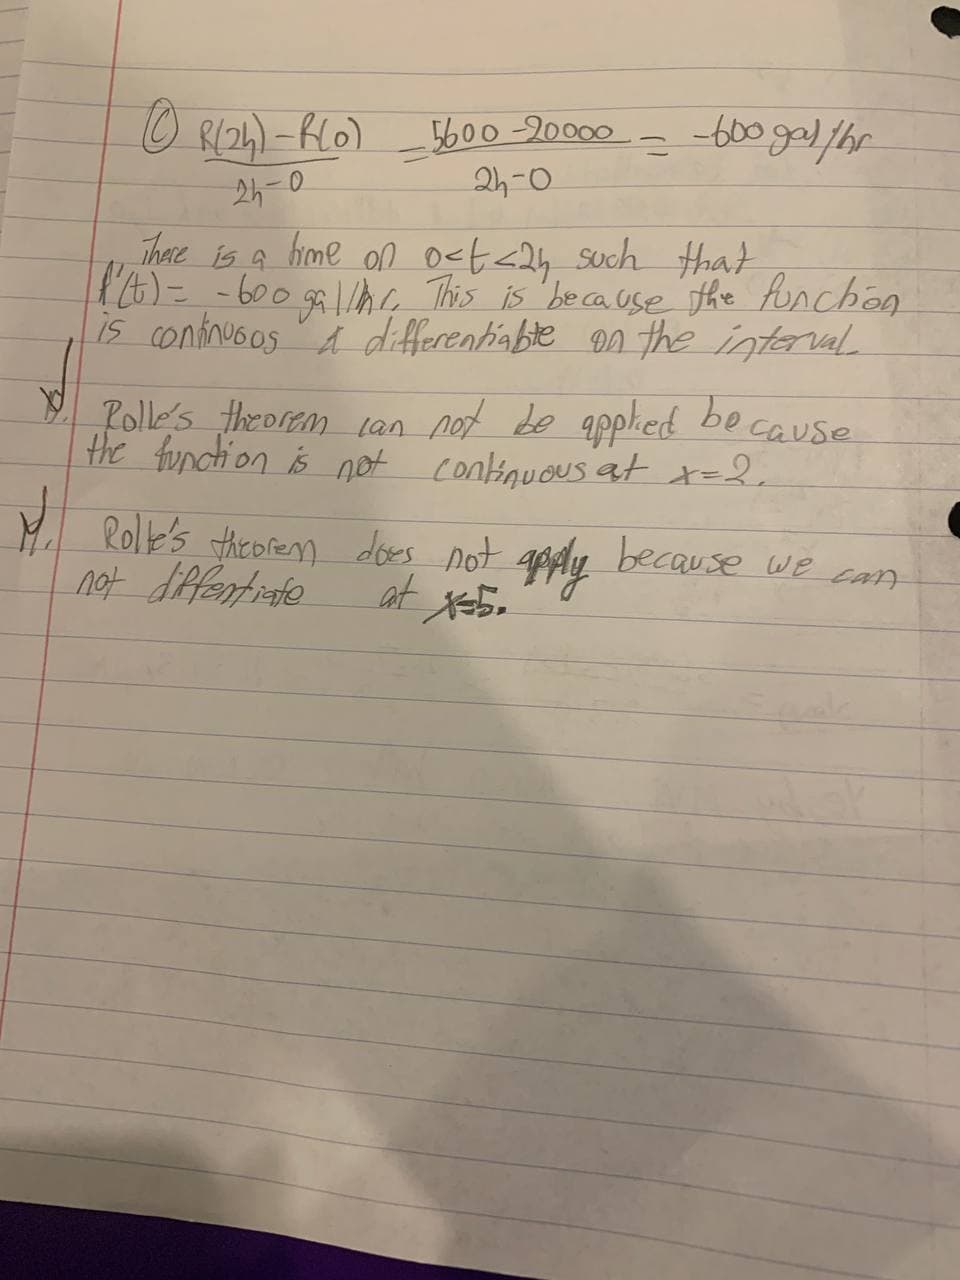 C R(24) - R(0) / 24-0 = 5600-20000 / 24-0 = -600 gal/hr
There is a time on 0<t<24 such that
R'(t) = -600 gal/hr. This is because the function
is continuoos & differentiable on the interval.
Rolle's theorem can not be applied because
the function is not continuous at x=2.
Rolle's theorem does not apply because we can
not diffentiate at x=5.